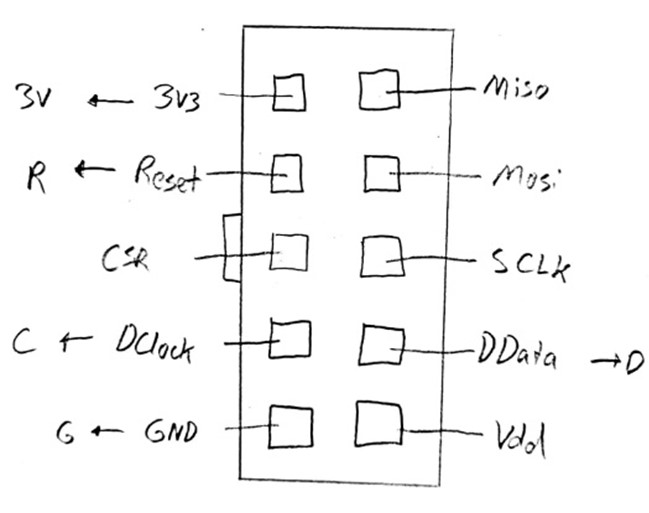 3V ← 3V3 Miso
R ← Reset Mosi
CSR SCLK
C ← DClock DData → D
G ← GND Vdd